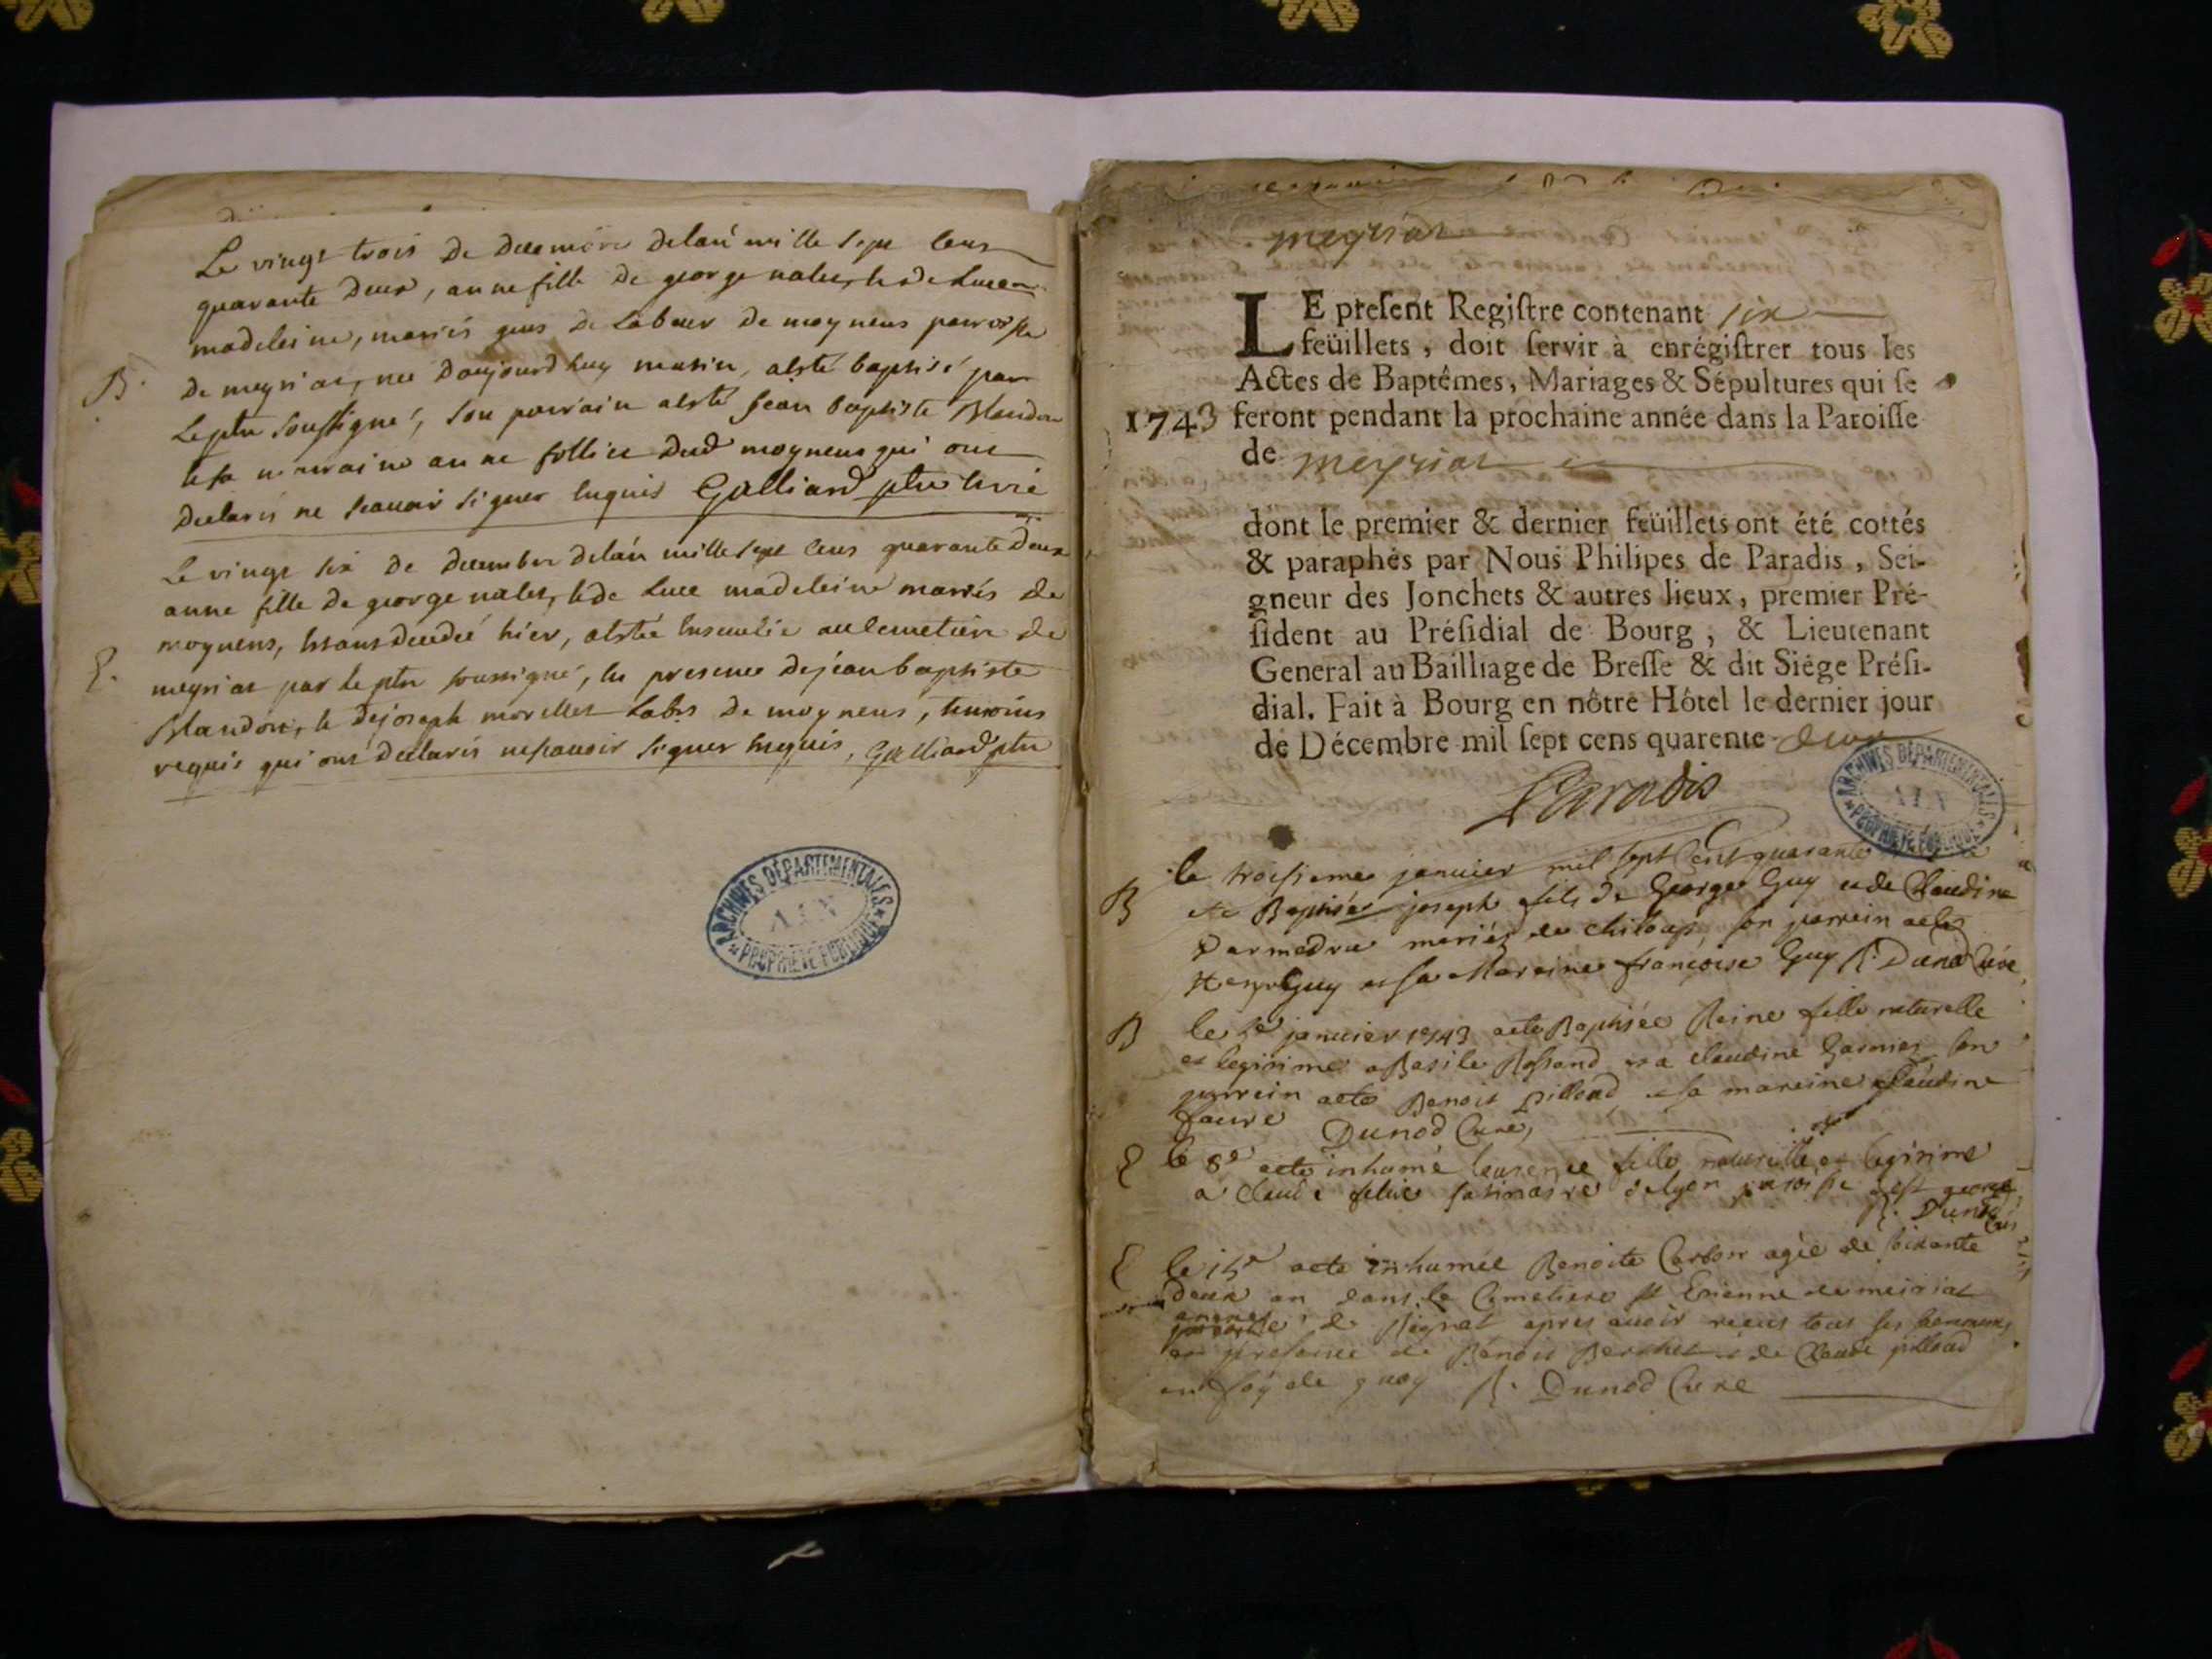 Le vingt trois De decembre delan mille sept cens
quarante Deux, anne fille De george nalet, & de Luce
madeleine, mariés gens de Labeur De moyneus parroisse
B. De meyriat, nee Daujourd huy matin, aesté baptisé par
Le ptre soussigné, son parrain aesté Jean baptiste Blandon
& sa marraine anne follies Dud moyneus qui ont
Declarés ne scavoir signer enquis Galliard ptre
Le vingt six De decembre delan mille sept cens quarante Deux
anne fille De george nalet, & de Luce madeleine mariés de
moyneus, decedée hier, aestée ensevelie au cemetiere de
E. meyriat par le ptre soussigné, en presence de jean baptiste
Blandon, & de joseph morellet Labrs De moyneus, temoins
requis qui ont Declarés ne scavoir signer enquis, Galliard ptre
ARCHIVES DÉPARTEMENTALES
AIN
PROPRIÉTÉ PUBLIQUE
meyriat
LE preſent Regiſtre contenant six
feüillets, doit ſervir à enrégiſtrer tous les
Actes de Baptêmes, Mariages & Sépultures qui ſe
1743 feront pendant la prochaine année dans la Paroiſſe
de meyriat
dont le premier & dernier feüillets ont été cottés
& paraphés par Nous Philipes de Paradis, Sei-
gneur des Jonchets & autres lieux, premier Pré-
ſident au Préſidial de Bourg, & Lieutenant
General au Bailliage de Breſſe & dit Siége Préſi-
dial. Fait à Bourg en nôtre Hôtel le dernier jour
de Décembre mil ſept cens quarente deux
Paradis
ARCHIVES DÉPARTEMENTALES
AIN
PROPRIÉTÉ PUBLIQUE
le troisieme janvier mil sept cent quarante
B ete Baptisé joseph fils de George Guy et de Claudine
mariéz de chiloup, son parrein aeté
Guy et sa Mareine francoise Guy Dunod Curé
B le janvier 1743 aeté Baptisée Reine fille naturelle
et legitime a Basile Rossand et a claudine Garnier son
parrein aeté Benoit pilloud et sa mareine Claudine
faure Dunod Curé
E le 8e aeté inhumé laurence fille naturelle et legitime
a claude de lyon paroisse
Dunod Curé
E le 15e aeté inhumée Benoite Carbon agée de soixante
deux an dans le Cimetiere st Etienne de meiriat
annexe de apres avoir receus tous ses sacremens
en presence de Benoit Berchet et de Claude pilloud
en foy de quoy Dunod Curé